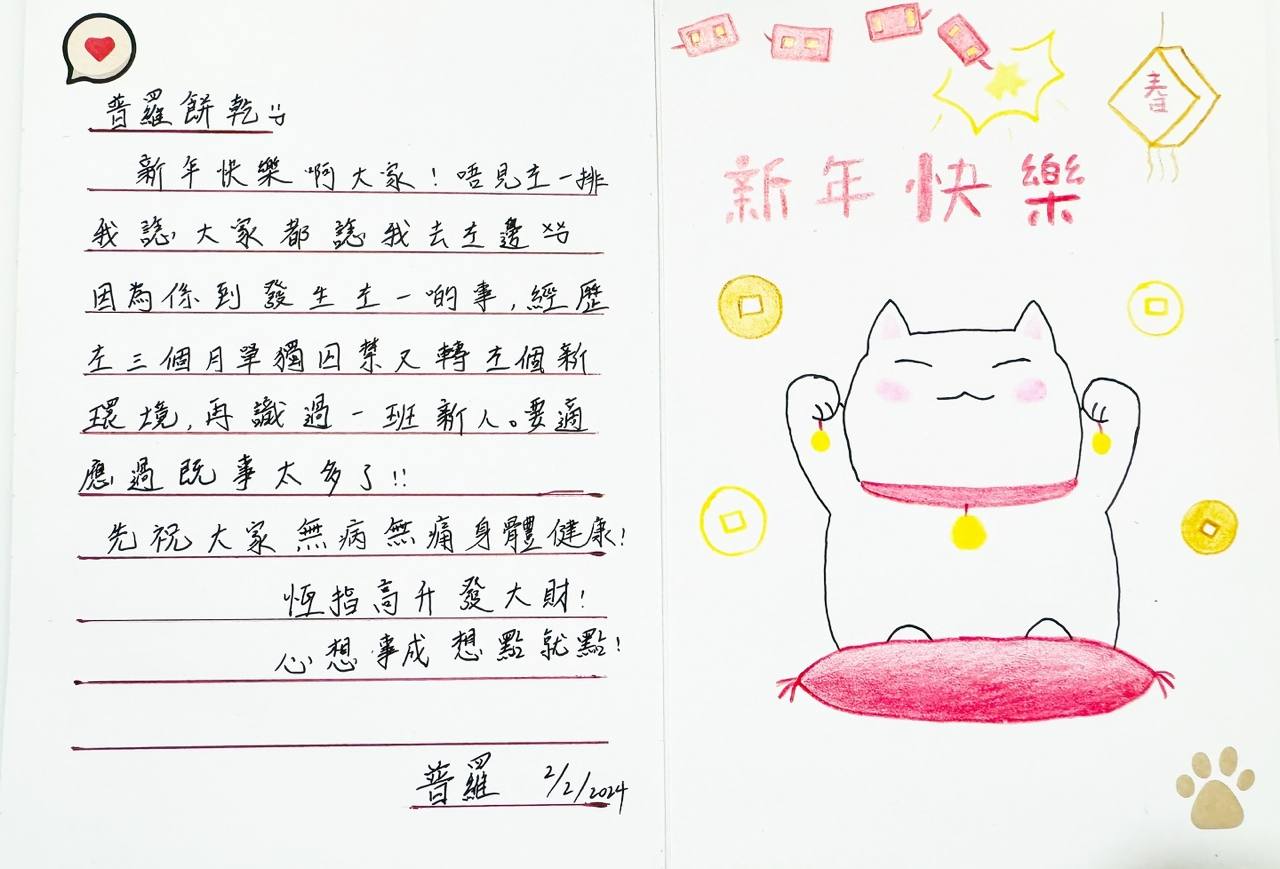 普羅餅乾:
新年快樂啊大家!唔見左一排
我諗大家都諗我去左邊
因為係到發生左一啲事,經歷
左三個月單獨囚禁又轉左個新
環境,再識過一班新人。要適
應過既事太多了!!
先祝大家無病無痛身體健康!
恆指高升發大財!
心想事成想點就點!
普羅 2/2/2024
春
新年快樂